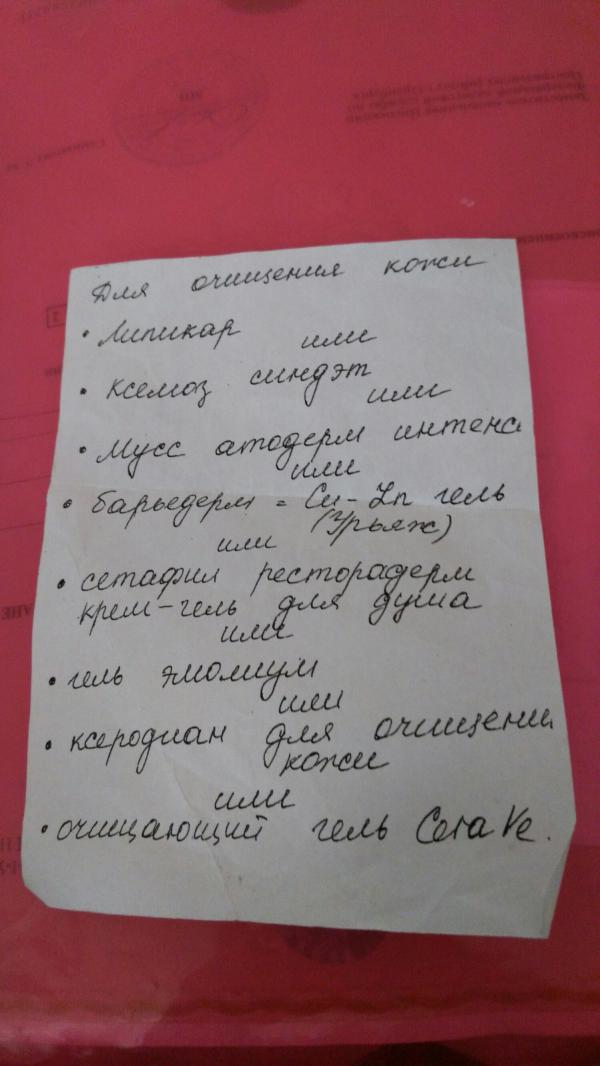 Для очищения кожи
• Липикар
или
• Ксемоз синдэт
или
• Мусс атодерм интенс
или
• барьедерм = Cu-Zn гель
(Урьяж)
или
• сетафил ресторадерм
крем-гель для душа
или
• гель эмолиум
или
• ксеродиан для очищени
кожи
или
• очищающий гель CeraVe.